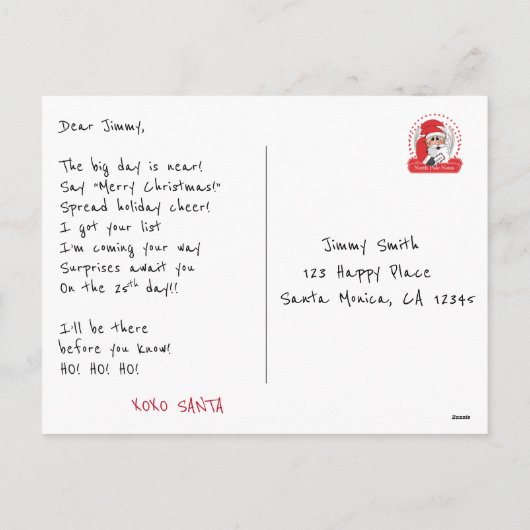 Dear Jimmy,
The big day is near!
Say "Merry Christmas!"
Spread holiday cheer!
I got your list
I'm coming your way
Surprises await you
On the 25th day!!
I'll be there
before you know!
HO! HO! HO!
XOXO SANTA
North Pole Notes
Jimmy Smith
123 Happy Place
Santa Monica, CA 12345
Zazzle